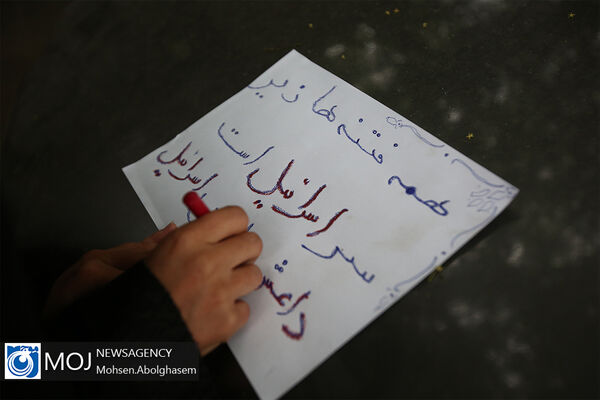 همه فتنه ها زیر
سر اسرائیل است
داعش اسرائیل
MOJ NEWSAGENCY
Mohsen.Abolghasem